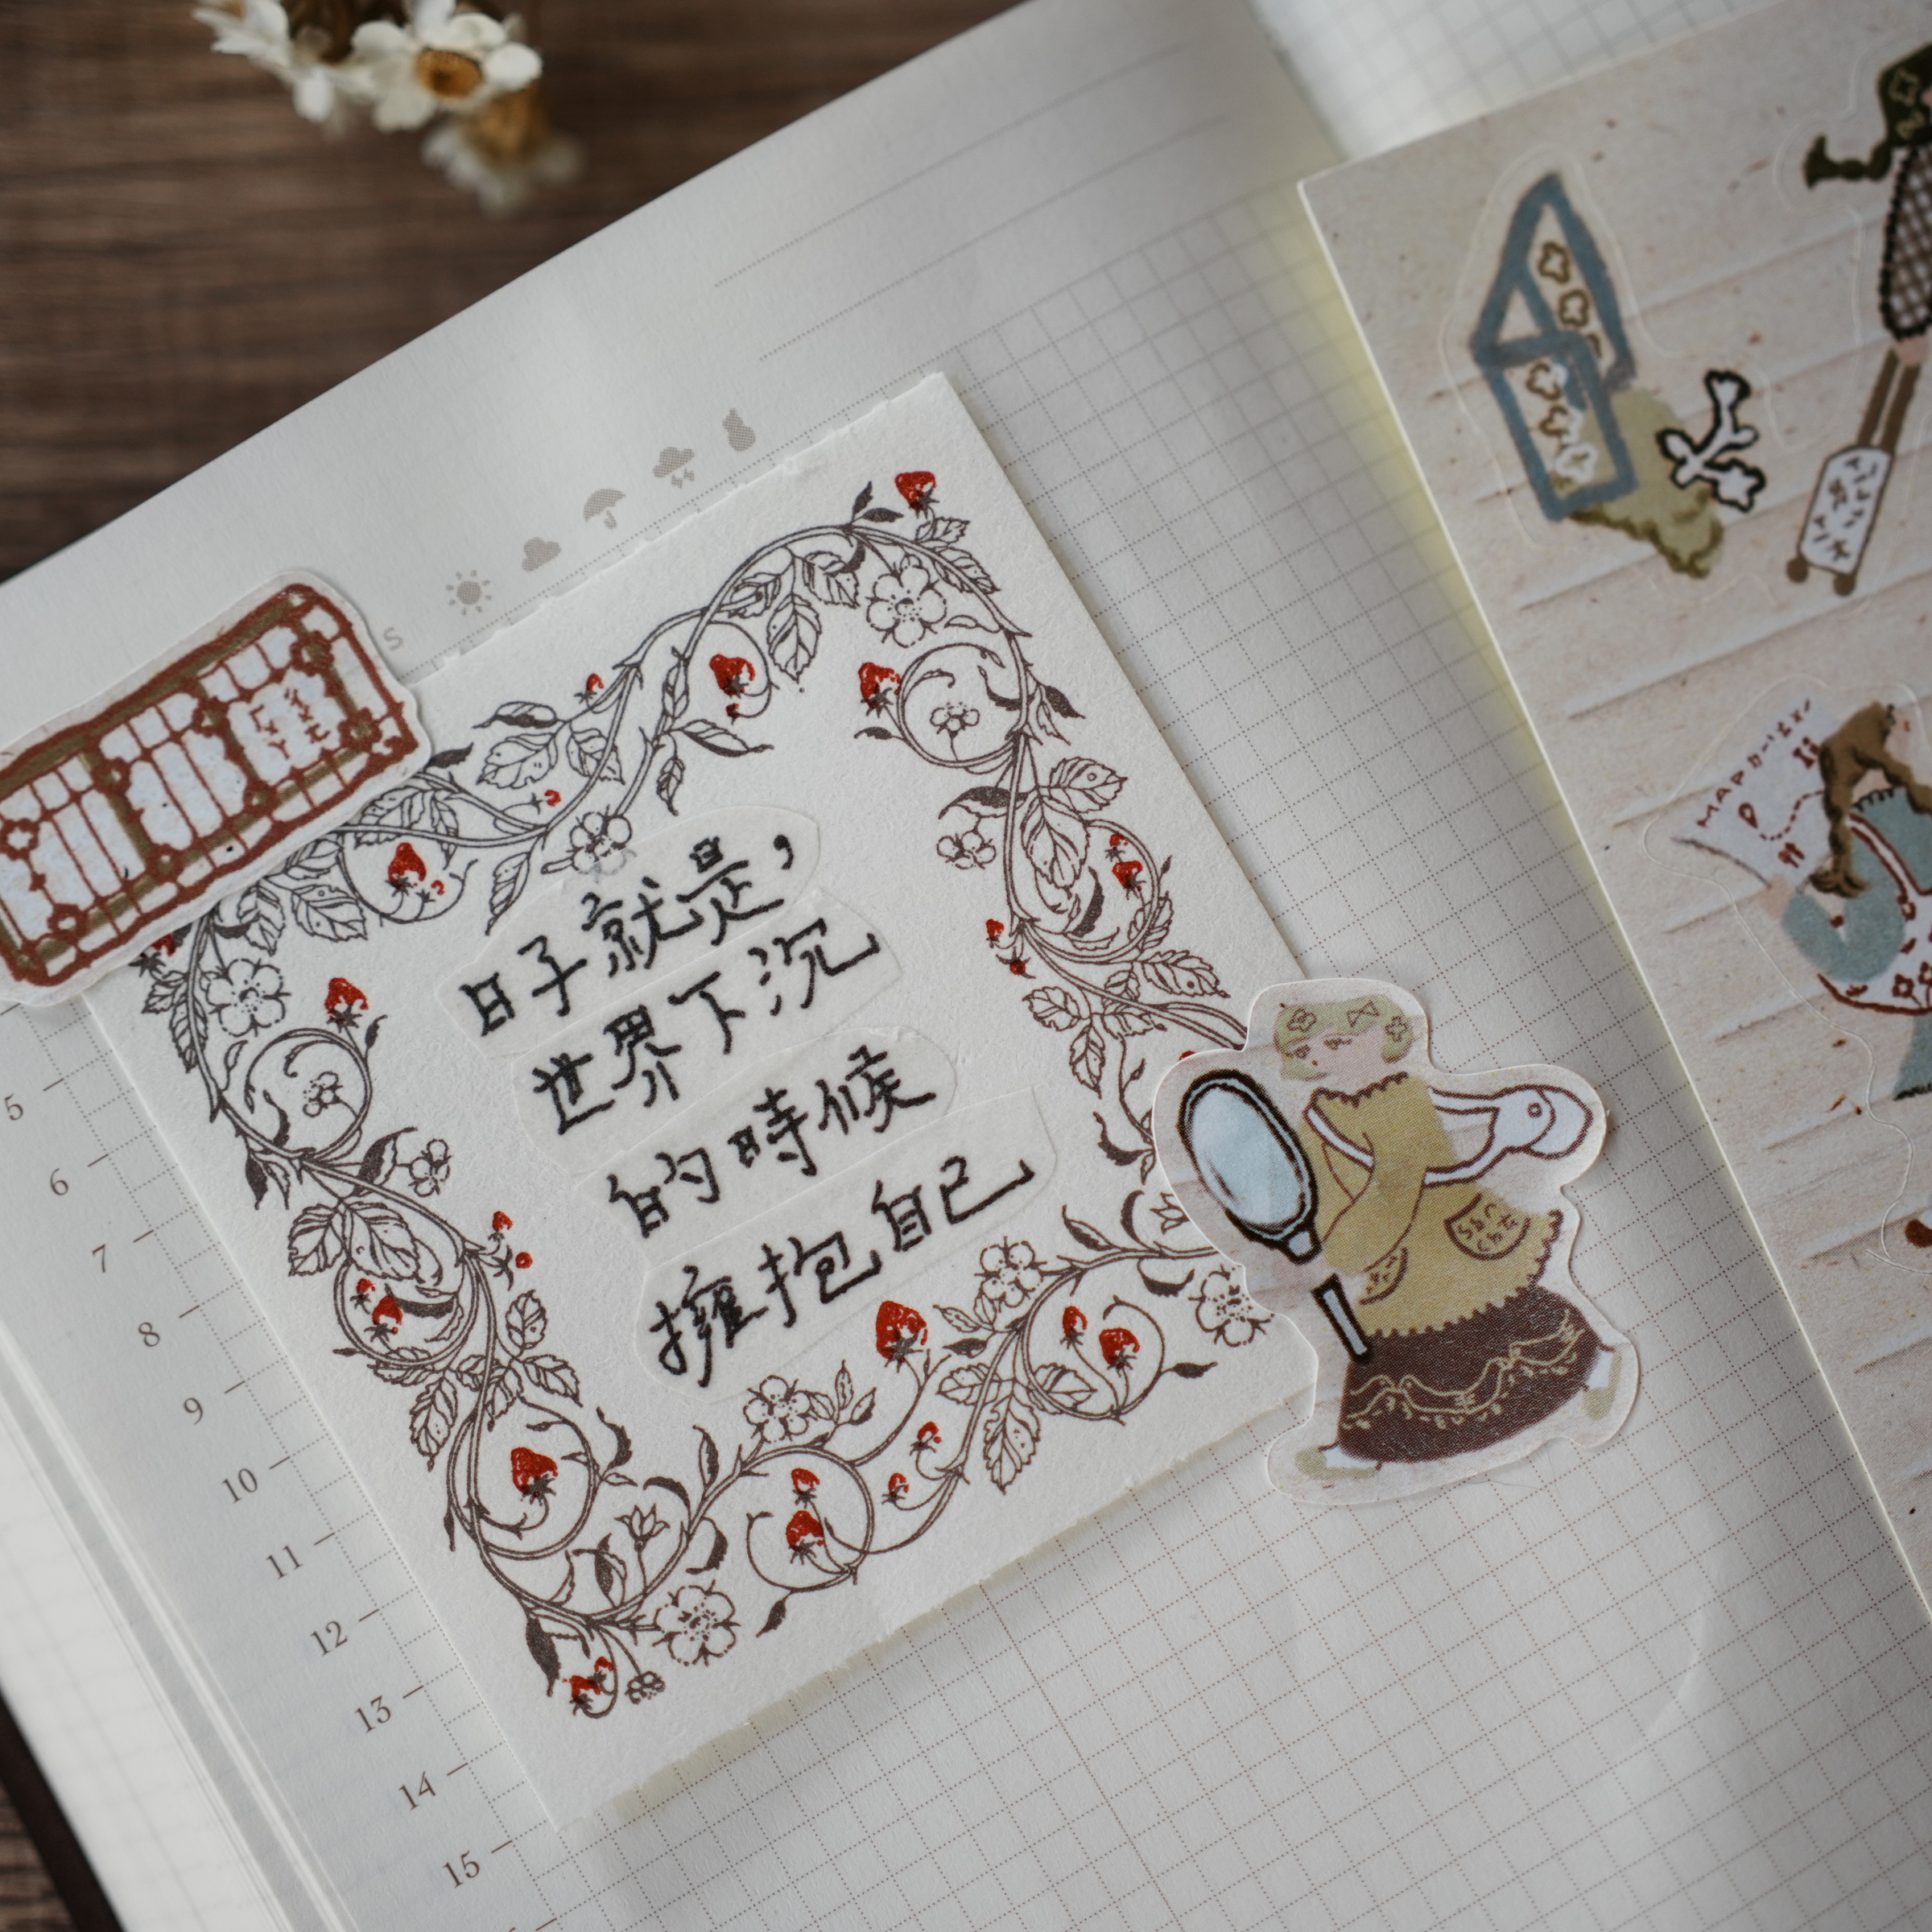 S
日子就是，
世界下沉
的時候
擁抱自己
5
6
7
8
9
10
11
12
13
14
15
MAP